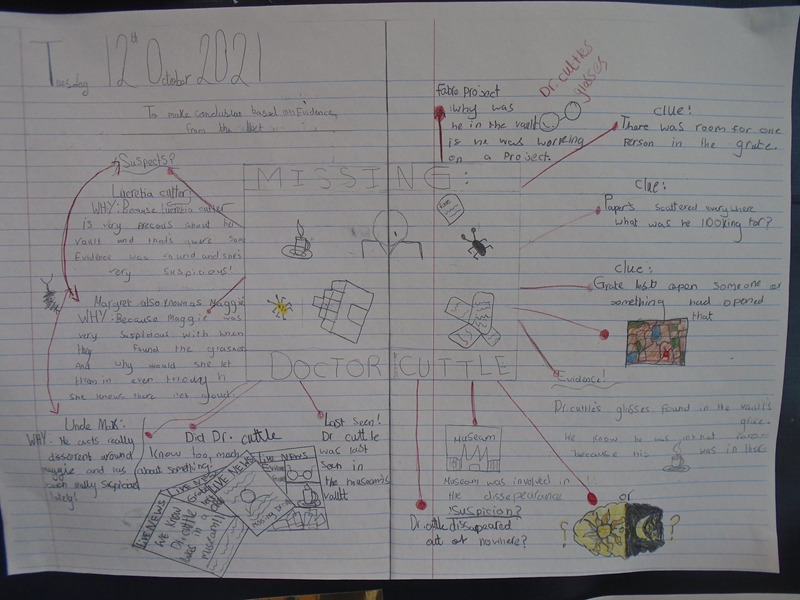 Tuesday 12th October 2021
To make conclusion based on Evidence
from the text
Suspects?
Lucretia cutter
WHY: Because lucretia cutter
is very precous about her
vault and thats were some
Evidence was found and shes
very suspicious!
Margret also known as Maggie
WHY: Because Maggie was
very suspicous with when
they found the glasses
And why would she let
them in even though
she knows there not aloud.
Uncle Max:
WHY: He acts really
different around
maggie and has
been really suspicous
lately!
Did Dr. cuttle
know too much
about something!
Last seen!
Dr cuttle
was last
seen in
the museam's
vault
LIVE NEWS
WE KNOW
Dr.cuttle
was in a
museum!
LIVE NEWS
LIVE NEWS
Missing Dr.
LIVE NEWS
MISSING:
DOCTOR CUTTLE
fabre project
why was
he in the vault
is he was working
on a project.
Dr.cuttles
glasses
clue!
There was room for one
person in the grate.
clue:
Paper's scattered everywhere
what was he looking for?
clue:
Grate left open someone or
something had opened
that
Evidence!
Dr.cuttle's glasses found in the vault's
grate.
We know he was
because his was in there
MUSEAM
Museam was involved in
the dissepearance
!Suspicion?
Dr.cuttle dissapeared
out of nowhere?
or
? ?